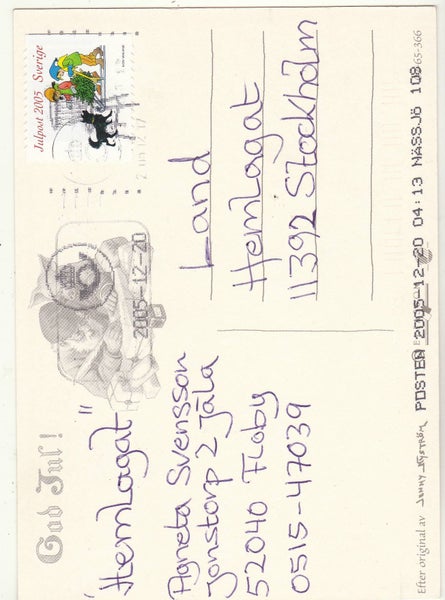 God Jul!
"Hemlagat"
Agneta Svensson
Jonstorp 2 Jäla
52040 Floby
0515-47039
Julpost 2005 Sverige
2005-12-20
Land
Hemlagat
11392 Stockholm
65-366
POSTEN 2005-12-20 04:13 NÄSSJÖ 108
Efter original av JENNY NYSTRÖM